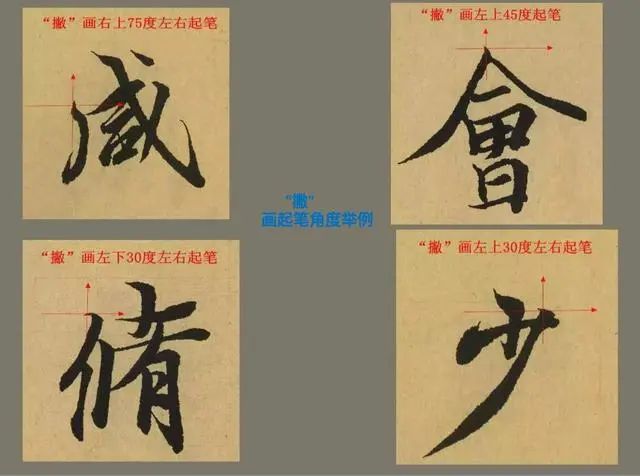 “撇”画右上75度左右起笔
咸
“撇”画左上45度起笔
會
“撇”
画起笔角度举例
“撇”画左下30度左右起笔
脩
“撇”画左上30度左右起笔
少